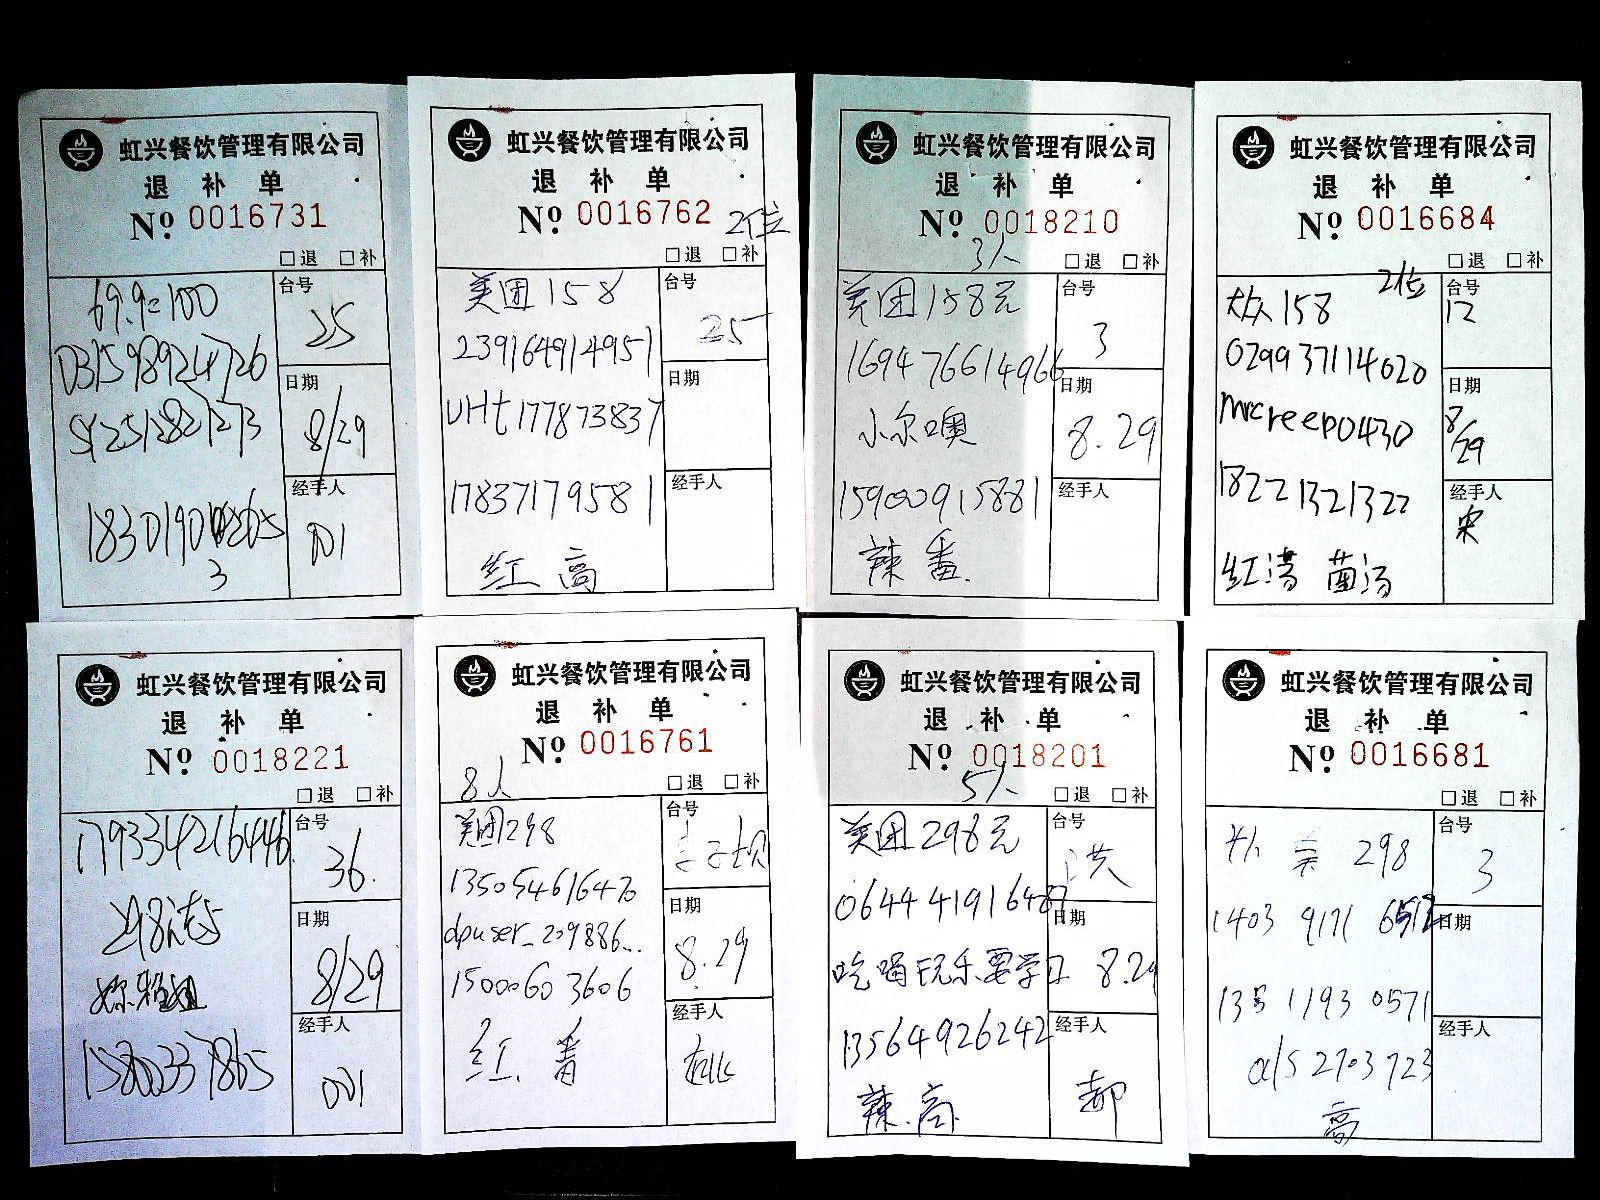 虹兴餐饮管理有限公司
退 补 单
Nº 0016731
□退 □补
69.9=100
台号
25
日期
8/29
经手人
001
3
虹兴餐饮管理有限公司
退 补 单
Nº 0016762
2位
□退 □补
美团158
台号
25
239164914951
日期
UHt177873837
17837179581
经手人
红 高
虹兴餐饮管理有限公司
退 补 单
Nº 0018210
3人
□退 □补
美团158元
台号
3
169476614966
日期
8.29
小尔噢
经手人
15900915881
辣 番
虹兴餐饮管理有限公司
退 补 单
Nº 0016684
□退 □补
2位
大众158
台号
12
029937114020
日期
8/29
mrcreep0430
18221321322
经手人
宋
红清 菌汤
虹兴餐饮管理有限公司
退 补 单
Nº 0018221
□退 □补
179334216446
台号
36.
日期
8/29
经手人
001
虹兴餐饮管理有限公司
退 补 单
Nº 0016761
8人
□退 □补
美团298
台号
135054616470
日期
8.29
dpuser_209886...
15000603606
经手人
红. 番
虹兴餐饮管理有限公司
退 补 单
Nº 0018201
5人
□退 □补
美团298元
台号
洪
064441916487
日期
8.29
吃喝玩乐要学习
13564926242
经手人
郝
辣.高
虹兴餐饮管理有限公司
退 补 单
Nº 0016681
□退 □补
298
台号
3
日期
1403 9171
经手人
高